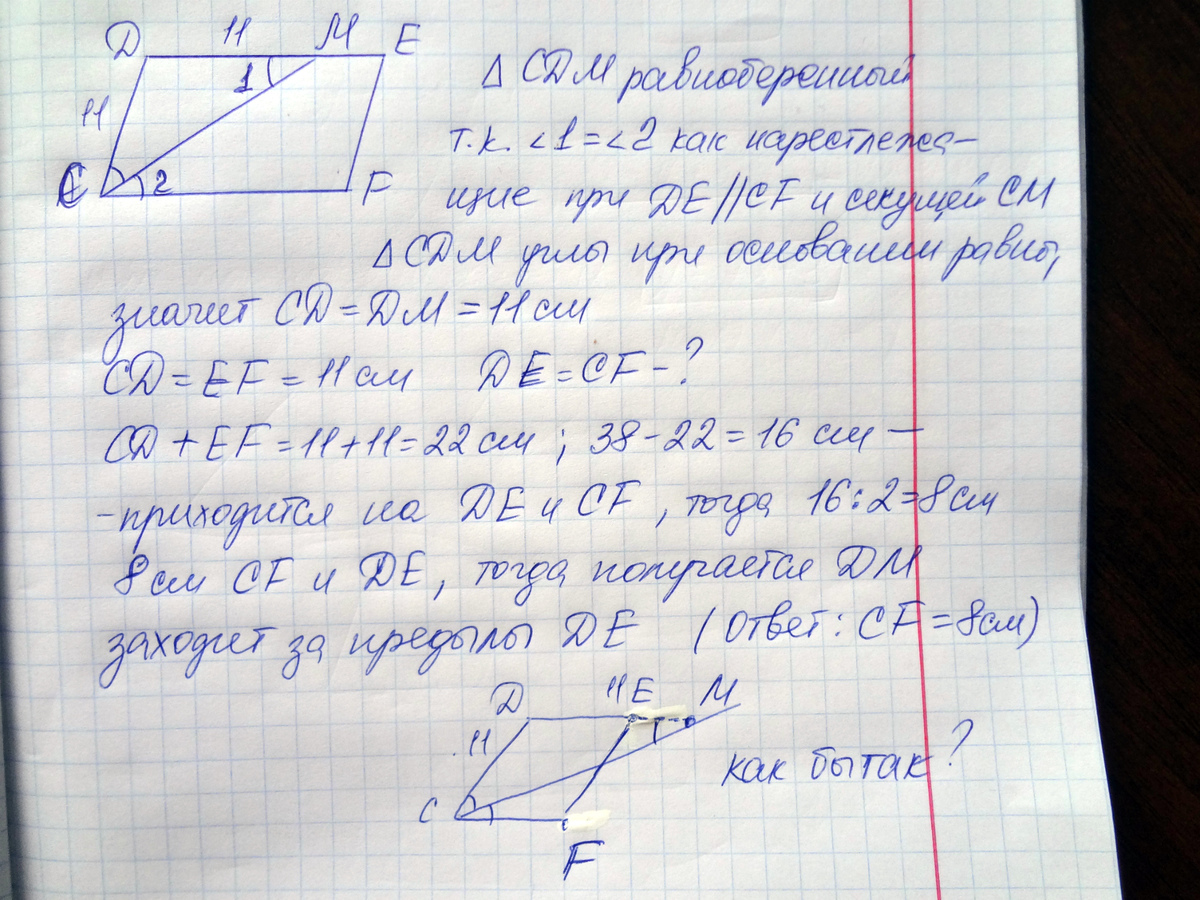 D 11 M E
1
11
C 2 F
Δ CDM равнобедренный
т.к. <1=<2 как накрестлежа-
щие при DE//CF и секущей CM
Δ CDM углы при основании равны,
значит CD=DM=11см
CD=EF=11см DE=CF-?
CD+EF=11+11=22см; 38-22=16 см —
-приходится на DE и CF, тогда 16:2=8см
8см CF и DE, тогда получается DM
заходит за предылы DE (Ответ: CF=8см)
D 11 E M
11
C
F
как бы так?